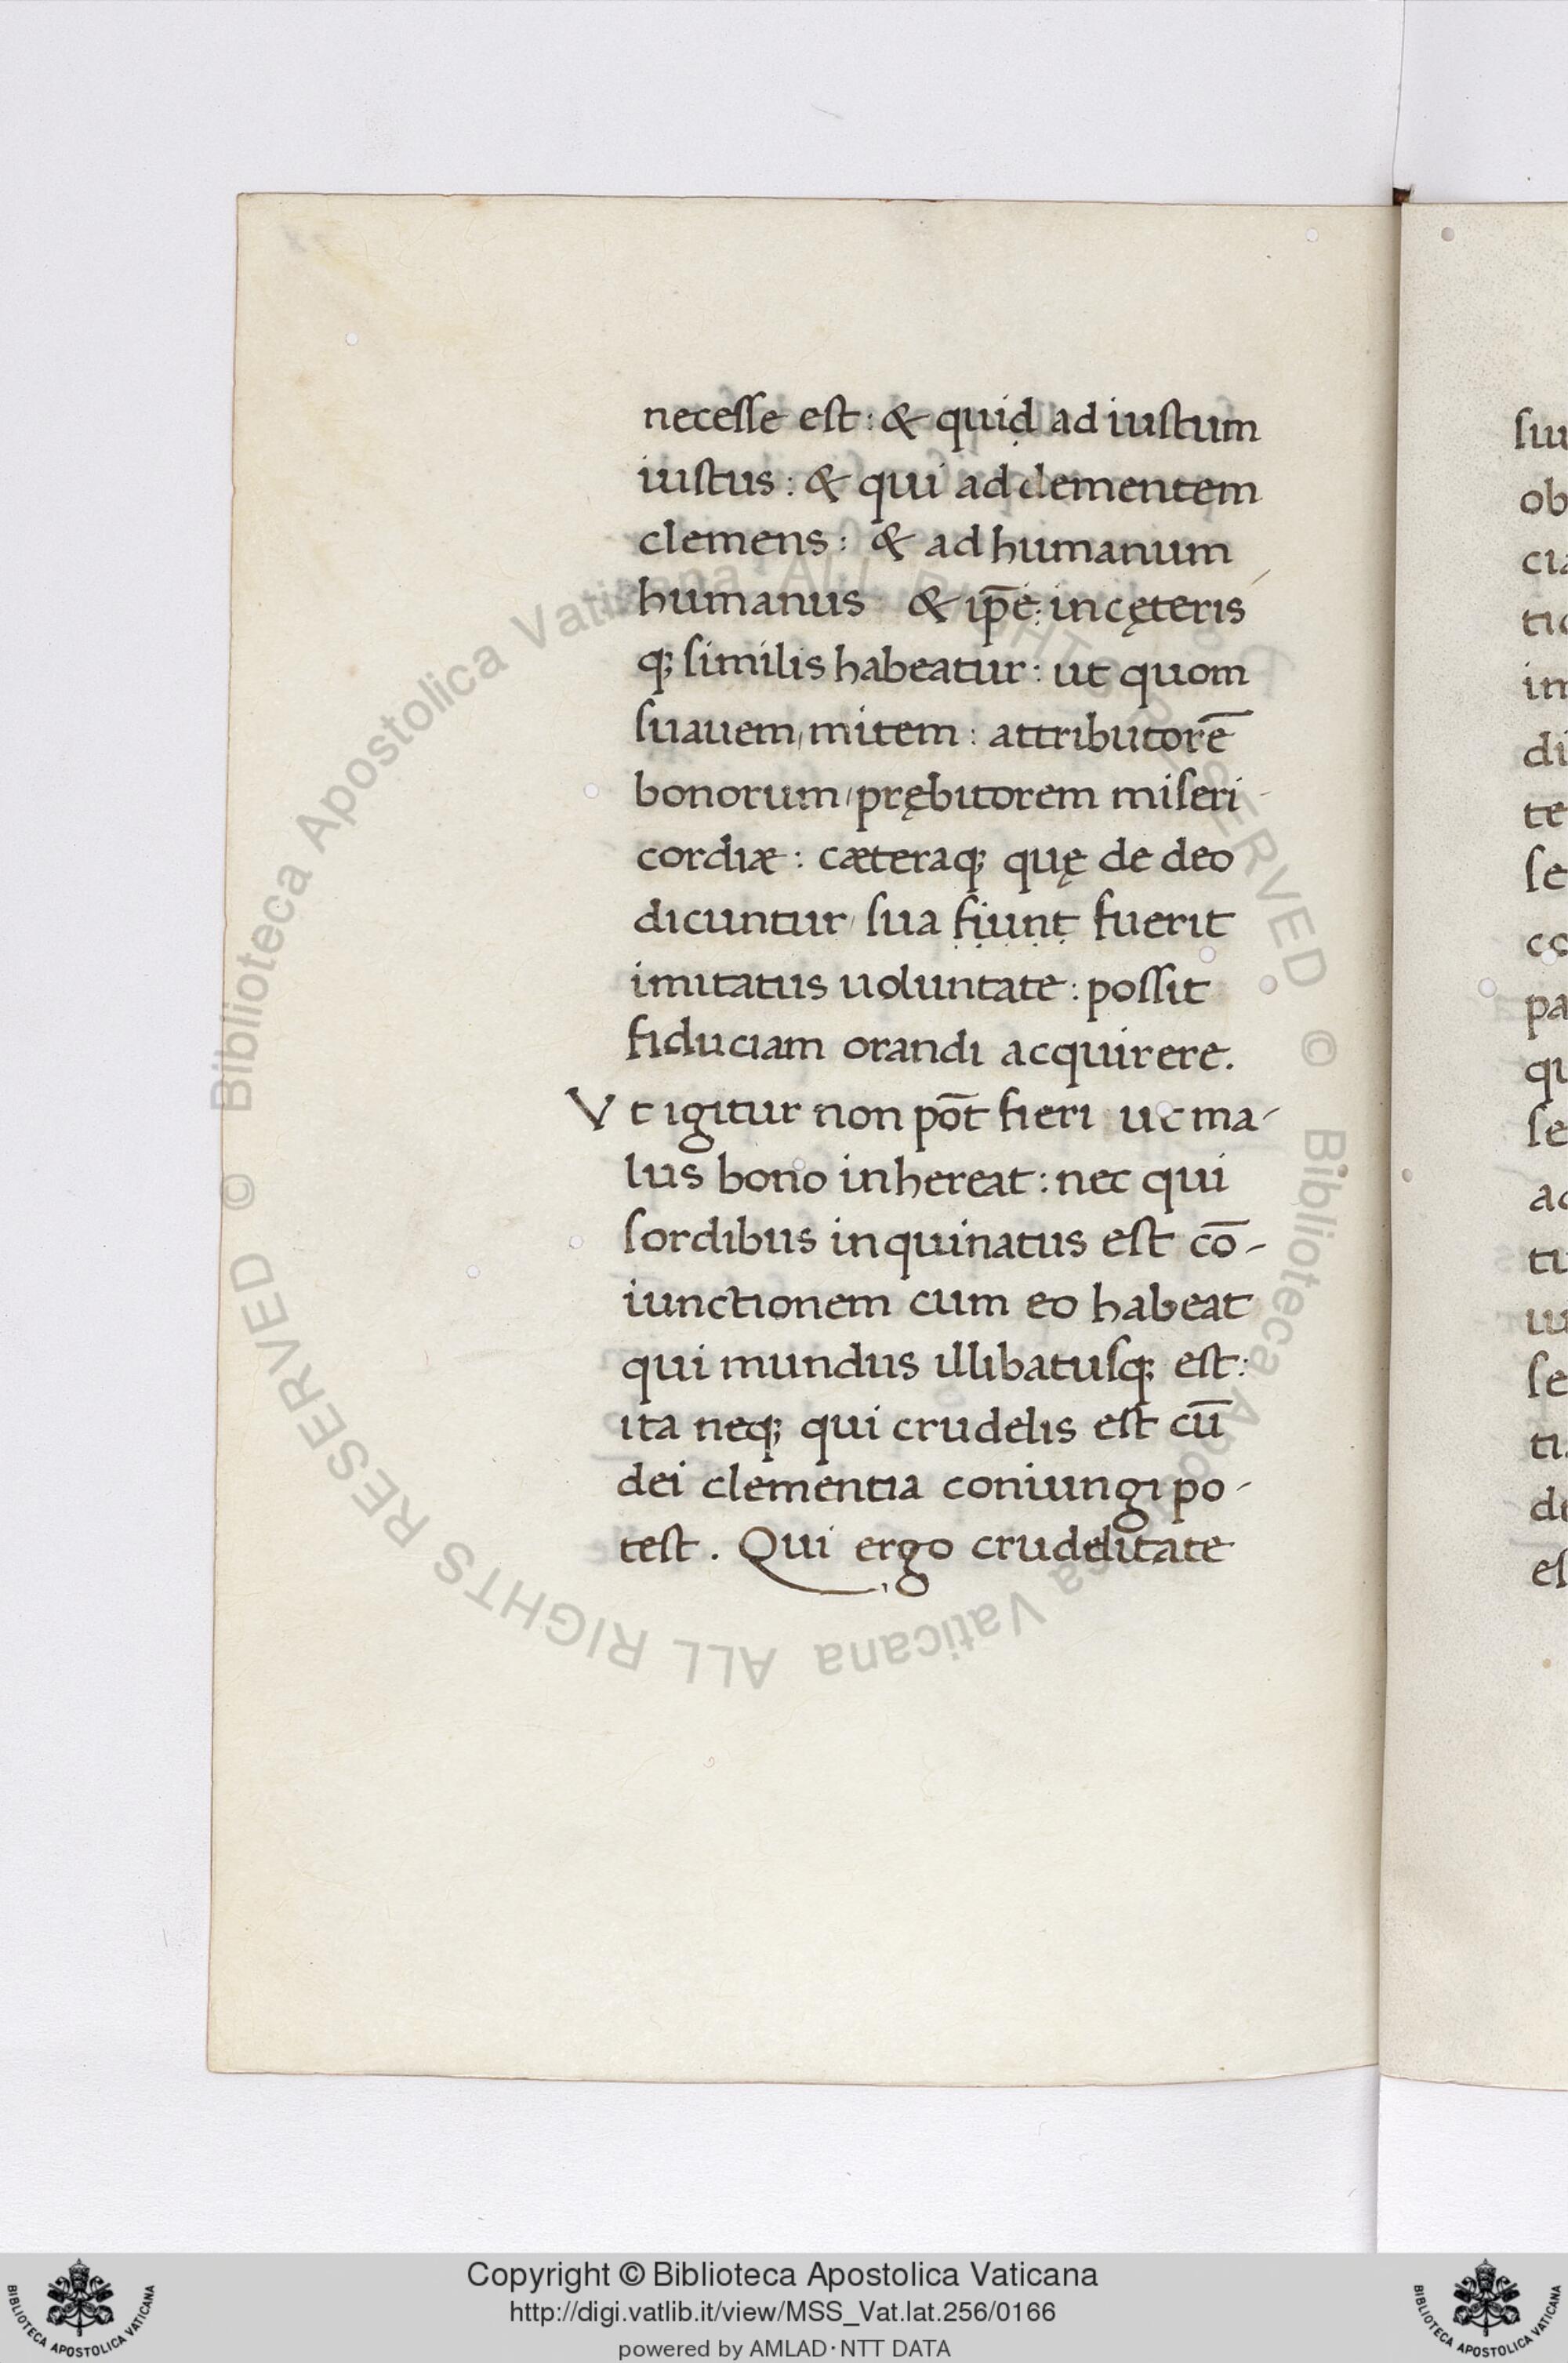 necesse est: & quid ad iustum
iustus: & qui ad clementem
clemens: & ad humanum
humanus & ip̄e: in cęteris
q; similis habeatur: ut quom
suauem, mitem: attributorē
bonorum, prębitorem miseri-
cordiæ: cæteraq; quę de deo
dicuntur, sua fiunt fuerit
imitatus uoluntate: possit
fiduciam orandi acquirere.
Vt igitur non pōt fieri ut ma-
lus bono inhereat: nec qui
sordibus inquinatus est cō-
iunctionem cum eo habeat
qui mundus illibatusq; est:
ita neq; qui crudelis est cū
dei clementia coniungi po-
test. Qui ergo crudelitate
siu
ob
cia
tio
im
di
te
se
co
pa
qu
se
ac
tu
se
de
es
© Biblioteca Apostolica Vaticana ALL RIGHTS RESERVED © Biblioteca Apostolica Vaticana ALL RIGHTS RESERVED
Copyright © Biblioteca Apostolica Vaticana
http://digi.vatlib.it/view/MSS_Vat.lat.256/0166
powered by AMLAD·NTT DATA
BIBLIOTECA APOSTOLICA VATICANA
BIBLIOTECA APOSTOLICA VATICANA